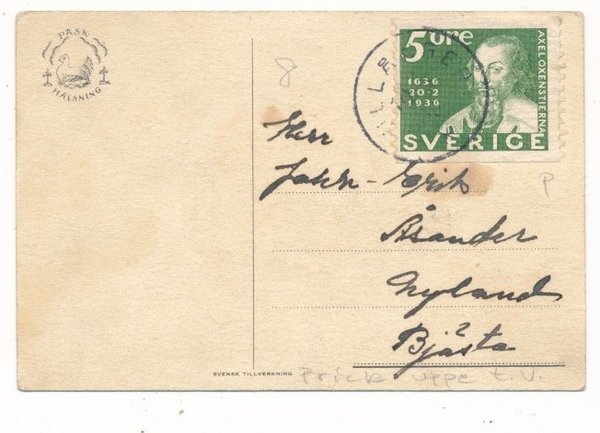 PÅSK
HÄLSNING
8
5 öre
1636
20·2
1936
AXEL OXENSTIERNA
SVERIGE
Herr
John-Erik
Åsander
Nyland
2
Bjästa
P
SVENSK TILLVERKNING
Prick uppe t.v.